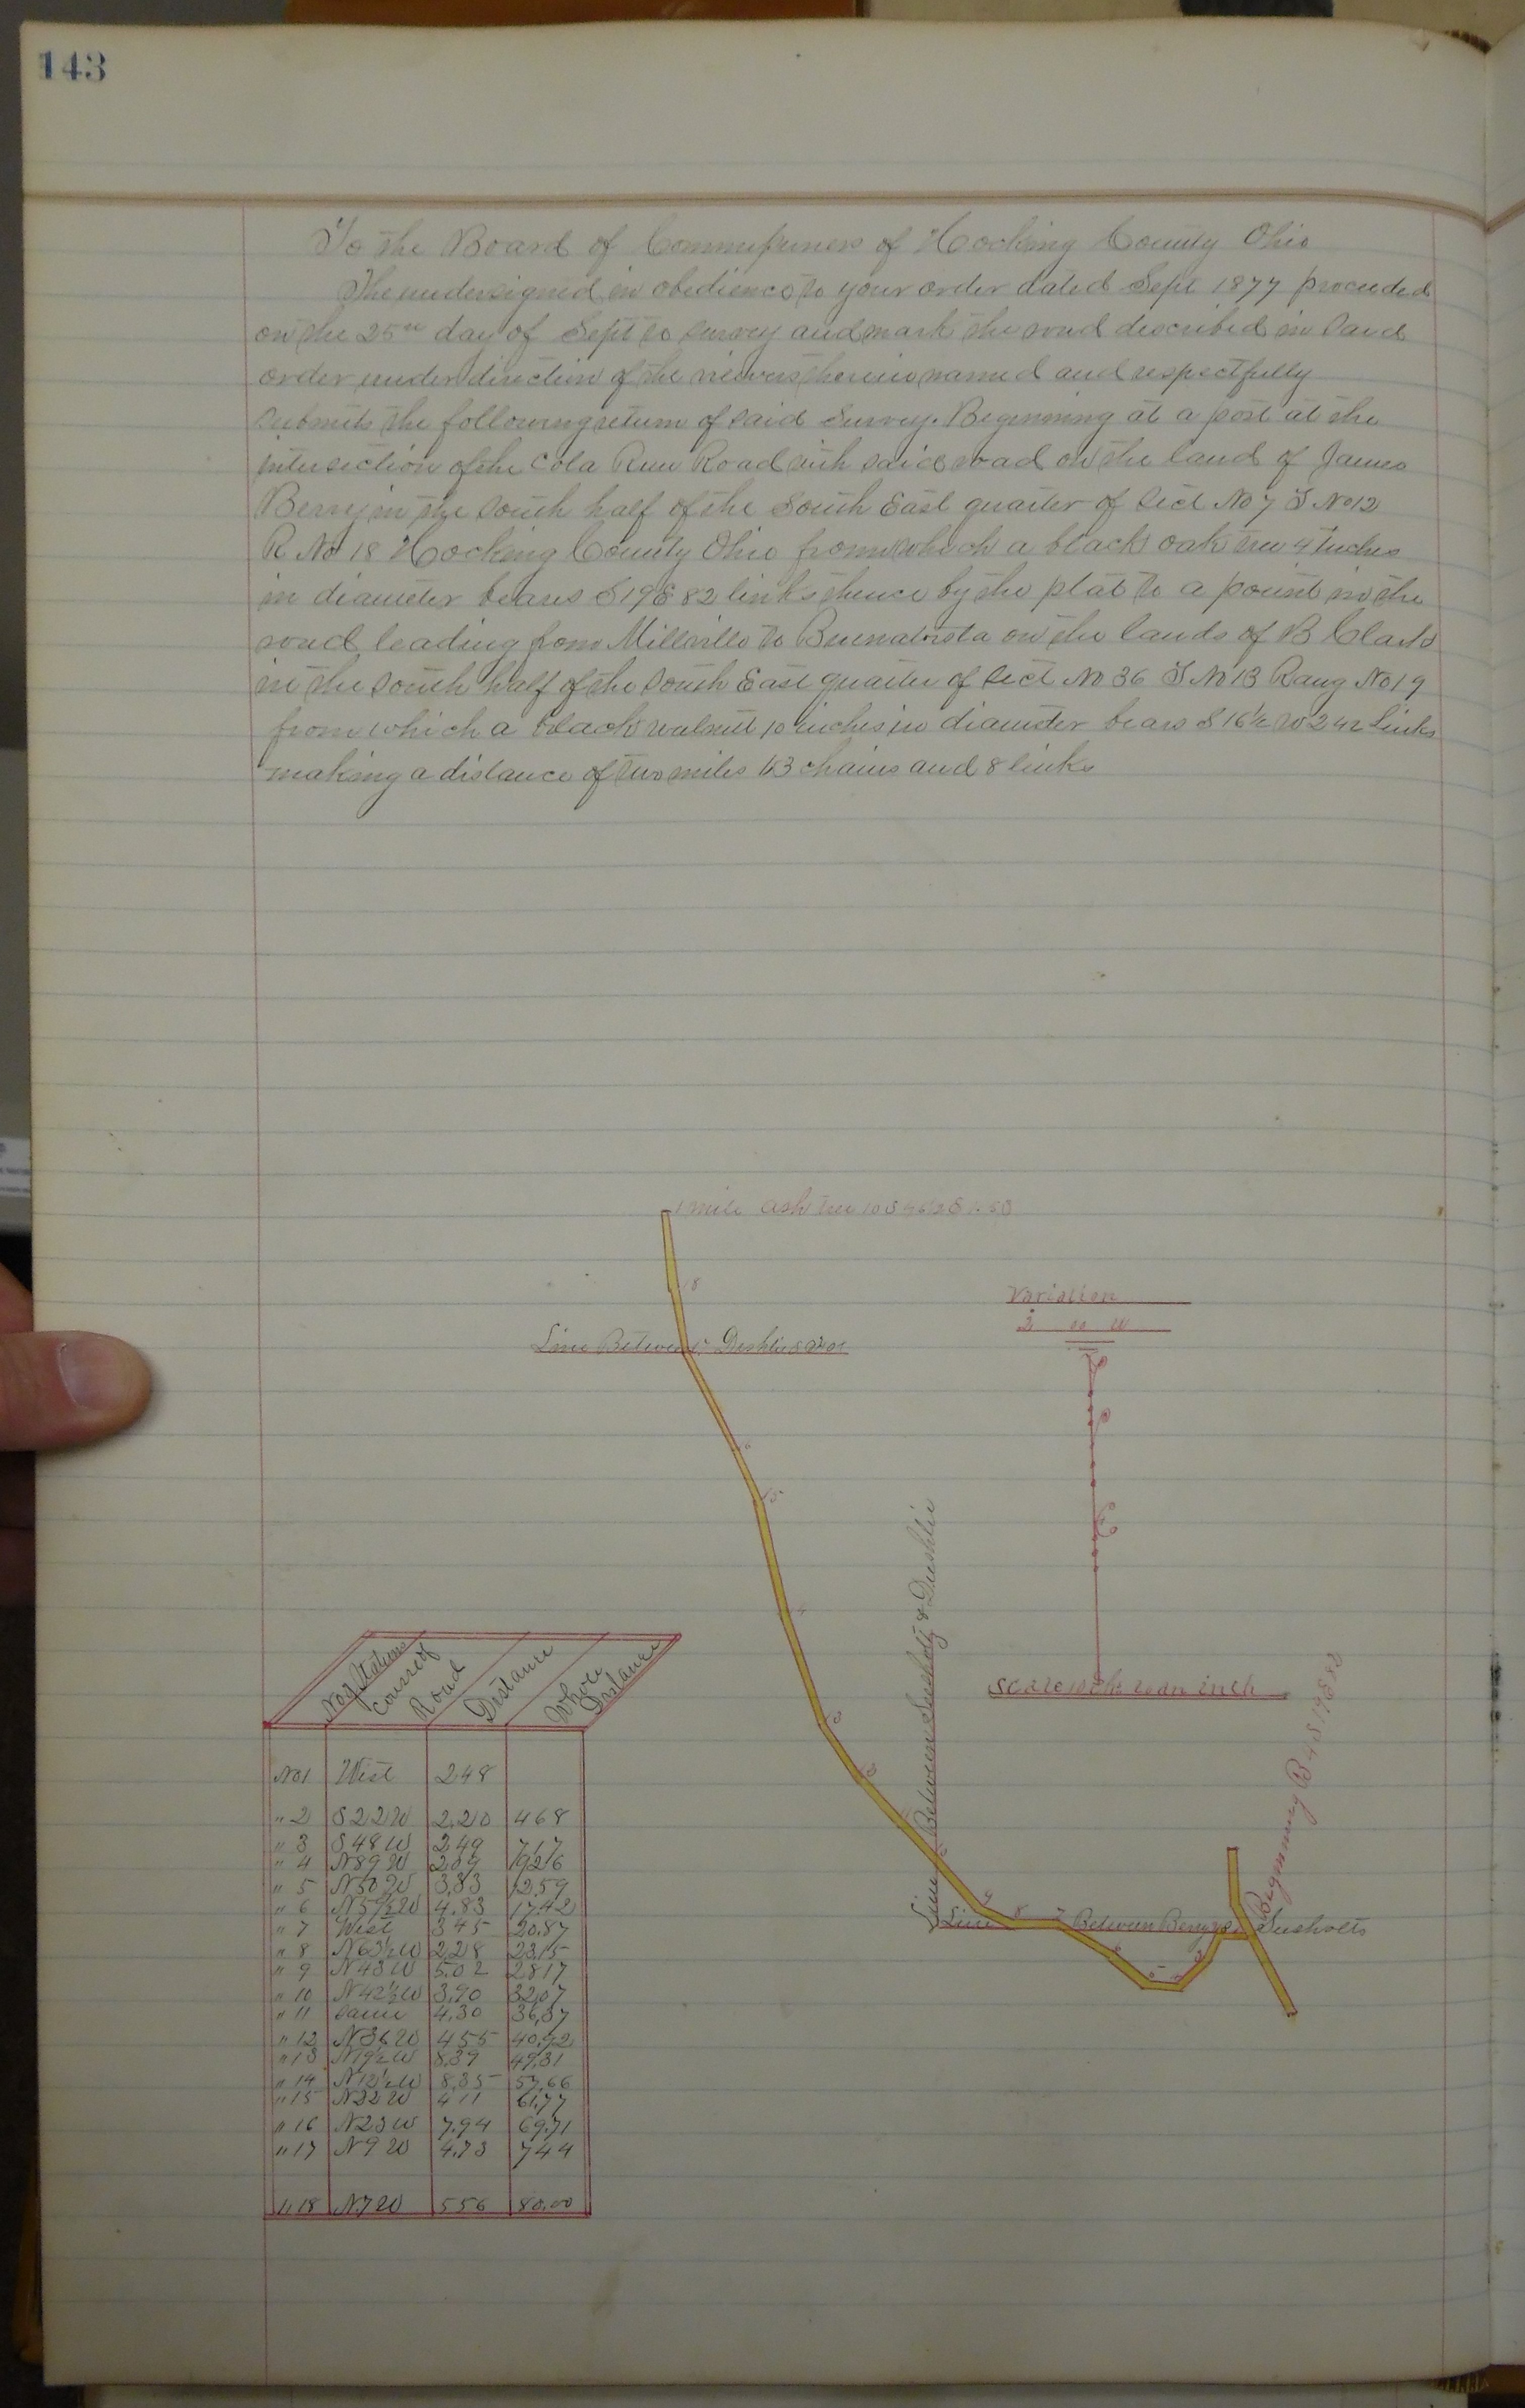 143
To the Board of Commissioners of Hocking County Ohio
The undersigned in obedience to your order dated Sept 1877 proceeded
on the 25th day of Sept to survey and mark the road described in said
order under direction of the viewers therein named and respectfully
submits the following return of said Survey. Beginning at a post at the
intersection of the Cola Run Road with said road on the land of James
Berry in the South half of the South East quarter of Sect No 7 T No 12
R No 18 Hocking County Ohio from which a black oak tree 4 Inches
in diameter bears S 19 E 82 links thence by the plat to a point in the
road leading from Millville to Buenavista on the lands of B Clark
in the South half of the South East quarter of Sect No 36 T No 13 Rang No 19
from which a black walnut 10 inches in diameter bears S 16½ W 242 links
making a distance of two miles 53 chains and 8 links
1 mile ash tree 10 S
18
Variation
2 00 W
Line Between Deshlie &
15
Line Between Susholtz & Deshlie
Scale 10 ch to an inch
Beginning B S 19 E 82
Line Between Berry & Susholts
No of Stations
Course of Road
Distance
Whole Distance
No 1 West 248
" 2 S 22 W 2.20 468
" 3 S 48 W 249 7,17
" 4 N 89 W 209 926
" 5 N 50 W 3.33 12.59
" 6 N 59½ W 4.83 17.42
" 7 West 345 20.87
" 8 N 63½ W 228 23.15
" 9 N 43 W 5.02 2817
" 10 N 42½ W 3.90 32.07
" 11 Same 4.30 36,37
" 12 N 36 W 455 40.92
" 13 N 19½ W 8.39 49.31
" 14 N 12½ W 8.35 57.66
" 15 N 22 W 411 61.77
" 16 N 23 W 7.94 69.71
" 17 N 9 W 4.73 744
" 18 N 7 W 556 80.00